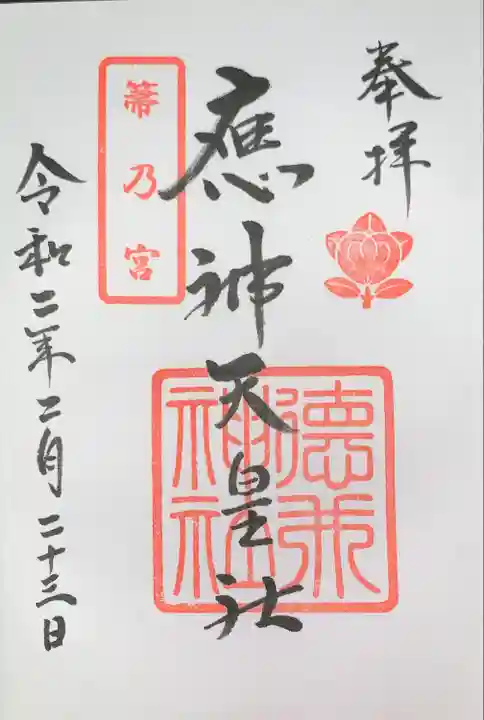 奉拝
應神天皇社
德永神社
箒乃宮
令和二年二月二十三日